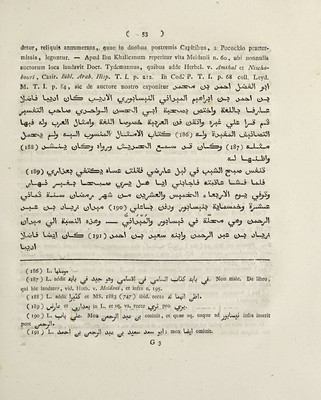 ( 53 )
detur, reliquis annumerans, quae in duobus postremis Capitibus, a Pocockio praeter-
missis, leguntur. — Apud Ibn Khalicanum reperitur vita Meidanii n. 60, ubi nonnulla
auctorum loca laudavit Doct. Tydemannus, quibus adde Herbel. v. Anithal et Nischa-
bouri, Casir. Bibl. Arab. Hisp. T. I. p. 212. In Cod. Pt. T. I. p. 68 coll. Leyd.
M. T. I. p. 84, sic de auctore nostro exponitur ابو الفضل احمد بن محمد
بن احمد بن ابراهيم الميداني النيسابوري الاديب كان اديبا فاضلا
عارفا باللغة واختص بصحبة ابي الحسن الواحدي صاحب التفسير
ثم قرا على غيره واتقن فن العربية خصوصا اللغة وامثال العرب وله فيها
التصانيف المفيدة وله (186) كتاب الامثال المنسوب اليه ولم يعمل
مثله (187) وكان قد سمع الحديث ورواه وكان ينشد (188)
واظنها له
تنفس صبح الشيب في ليل عارضي فقلت عساه يكتفي بعذاري (189)
فلما فشا عاتبته فاجابني ايا هل يرى صبحا بغير نهار
وتوفي يوم الاربعاء الخامس والعشرين من شهر رمضان سنة ثماني
عشرة وخمسماية بنيسابور ودفن بباعلى (190) ميدان زياد بن عبد
الرحمن وهي محلة في نيسابور والميداني — وهذه النسبة الى ميدان
زياد بن عبد الرحمن وابنه سعيد بن احمد (191) كان ايضا فاضلا
اديبا
(186) L.
(187) L. addit في بابه. Non male. De libro,
qui hic laudatur, vid. Herb. v. Meidani, et infra n. 195.
(188) L. addit كثيرا et MS. 1883 (747) ibid.
(189) L. et
(190) L. Mox بن عبد الرحمن omittit, et quae sq. usque ad نيسابور infra inserit
post الرحمن.
(191) L. ; mox ايضا omittit.
G 3